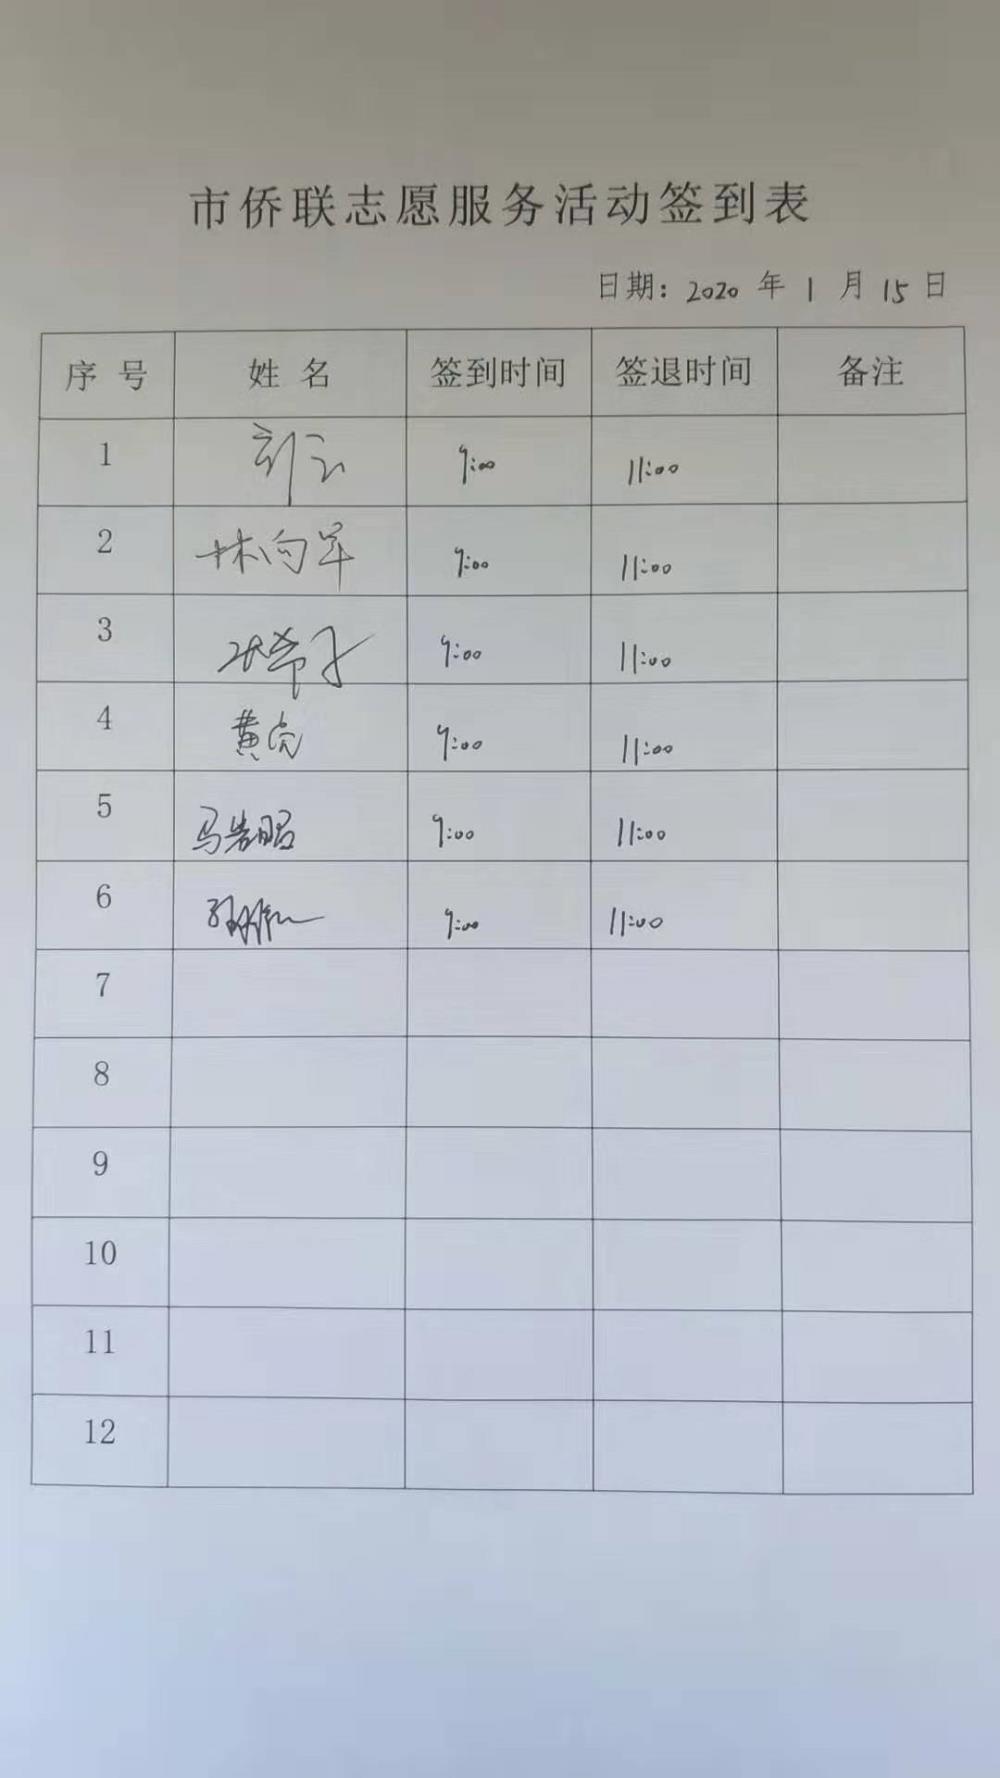 市侨联志愿服务活动签到表
日期: 2020 年 1 月 15 日
序号 姓名 签到时间 签退时间 备注
1 刘云 9:00 11:00
2 林向军 9:00 11:00
3 9:00 11:00
4 黄亮 9:00 11:00
5 马岩昭 9:00 11:00
6 9:00 11:00
7
8
9
10
11
12